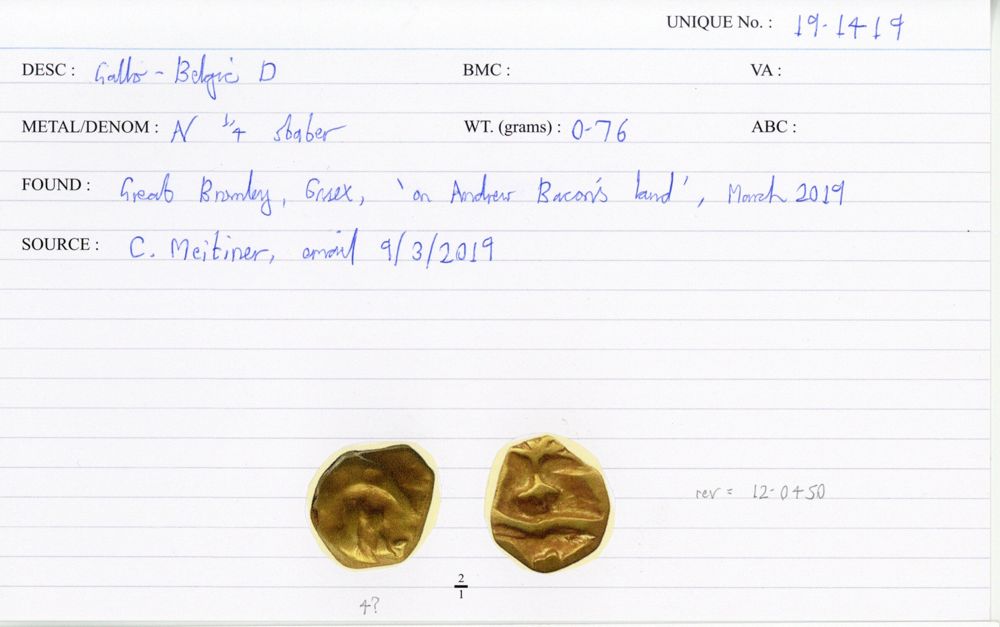 UNIQUE No. : 19-1419
DESC : Gallo-Belgic D BMC : VA :
METAL/DENOM : N 1/4 stater WT. (grams) : 0-76 ABC :
FOUND : Great Bromley, Essex, 'on Andrew Bacon's land', March 2019
SOURCE : C. Meitiner, email 9/3/2019
rev = 12-0450
2
1
4?